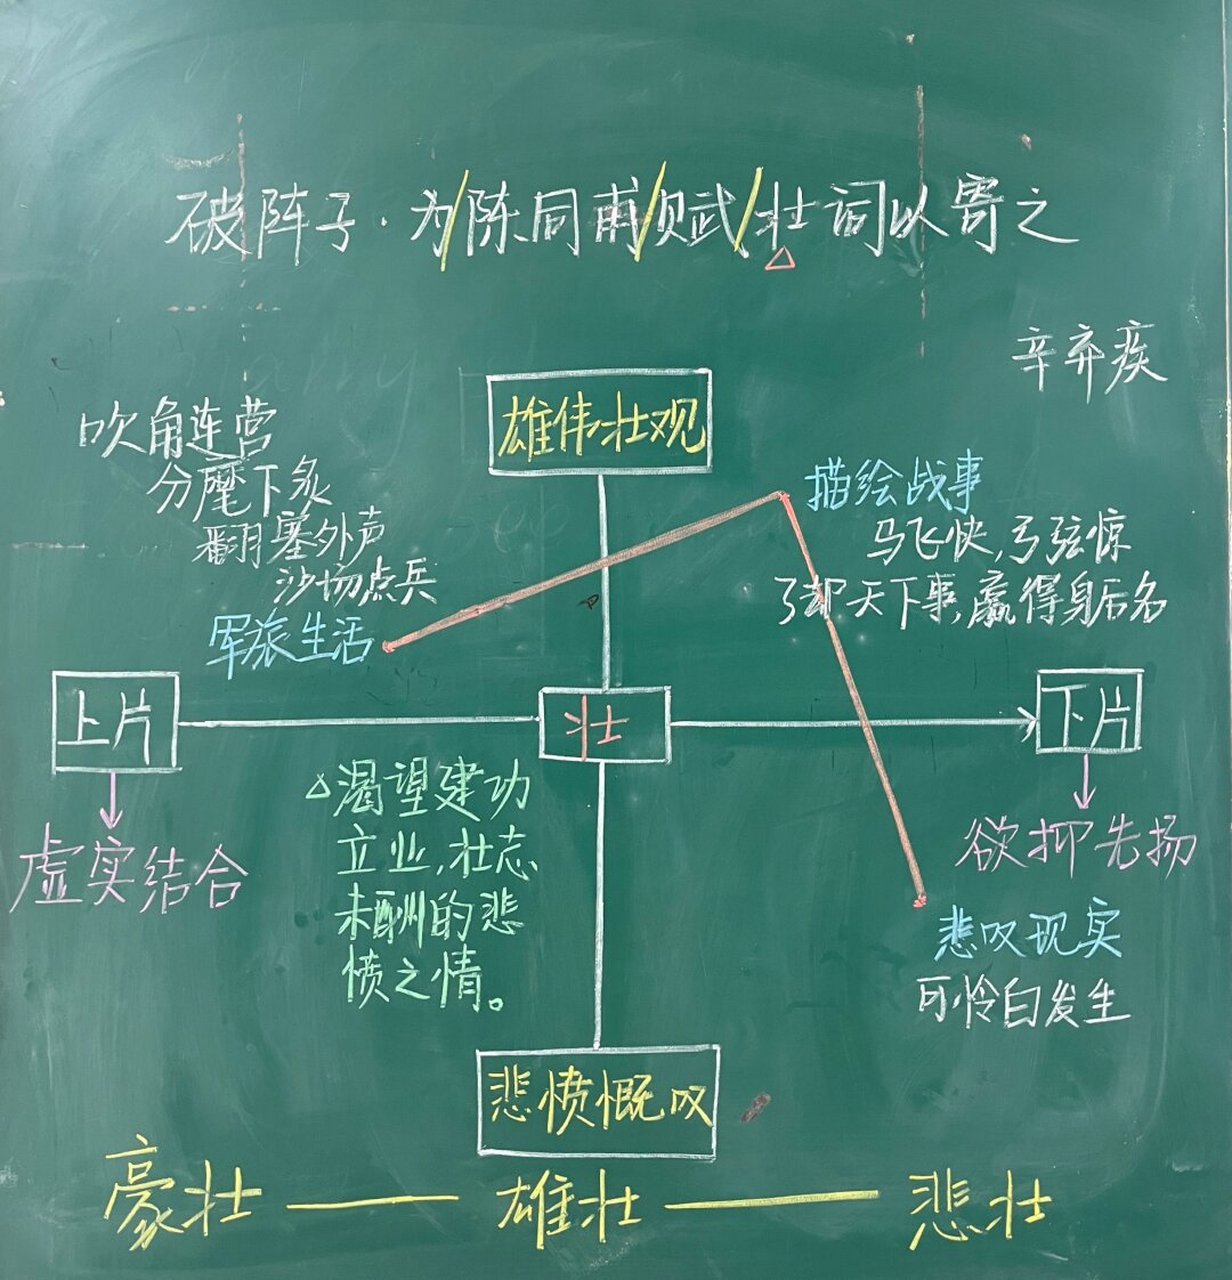 破阵子·为/陈同甫/赋/壮词以寄之
辛弃疾
雄伟壮观
吹角连营
分麾下炙
翻塞外声
沙场点兵
军旅生活
描绘战事
马飞快,弓弦惊
了却天下事,赢得身后名
上片
壮
下片
虚实结合
△渴望建功
立业,壮志
未酬的悲
愤之情。
欲抑先扬
悲叹现实
可怜白发生
悲愤慨叹
豪壮——雄壮——悲壮